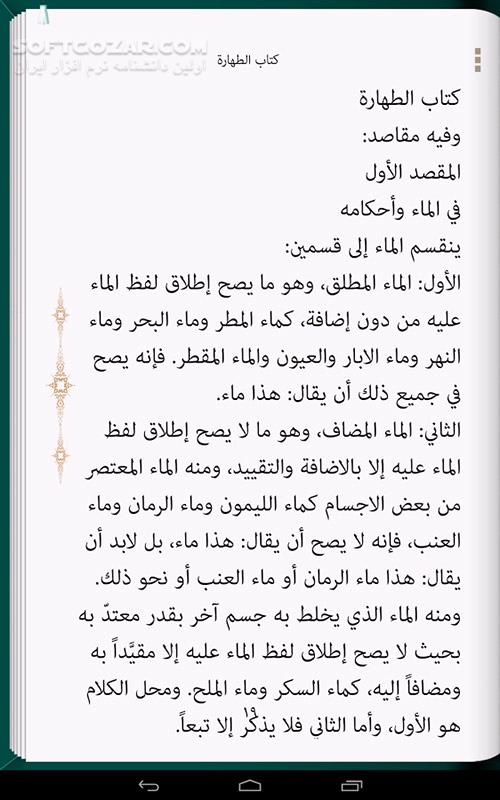 SOFTGOZAR.COM
اولین دانشنامه نرم افزار ایران
كتاب الطهارة
كتاب الطهارة
وفيه مقاصد:
المقصد الأول
في الماء وأحكامه
ينقسم الماء إلى قسمين:
الأول: الماء المطلق، وهو ما يصح إطلاق لفظ الماء
عليه من دون إضافة، كماء المطر وماء البحر وماء
النهر وماء الابار والعيون والماء المقطر. فإنه يصح
في جميع ذلك أن يقال: هذا ماء.
الثاني: الماء المضاف، وهو ما لا يصح إطلاق لفظ
الماء عليه إلا بالاضافة والتقييد، ومنه الماء المعتصر
من بعض الاجسام كماء الليمون وماء الرمان وماء
العنب، فإنه لا يصح أن يقال: هذا ماء، بل لابد أن
يقال: هذا ماء الرمان أو ماء العنب أو نحو ذلك.
ومنه الماء الذي يخلط به جسم آخر بقدر معتدّ به
بحيث لا يصح إطلاق لفظ الماء عليه إلا مقيَّداً به
ومضافاً إليه، كماء السكر وماء الملح. ومحل الكلام
١٩
هو الأول، وأما الثاني فلا يذكر إلا تبعاً.